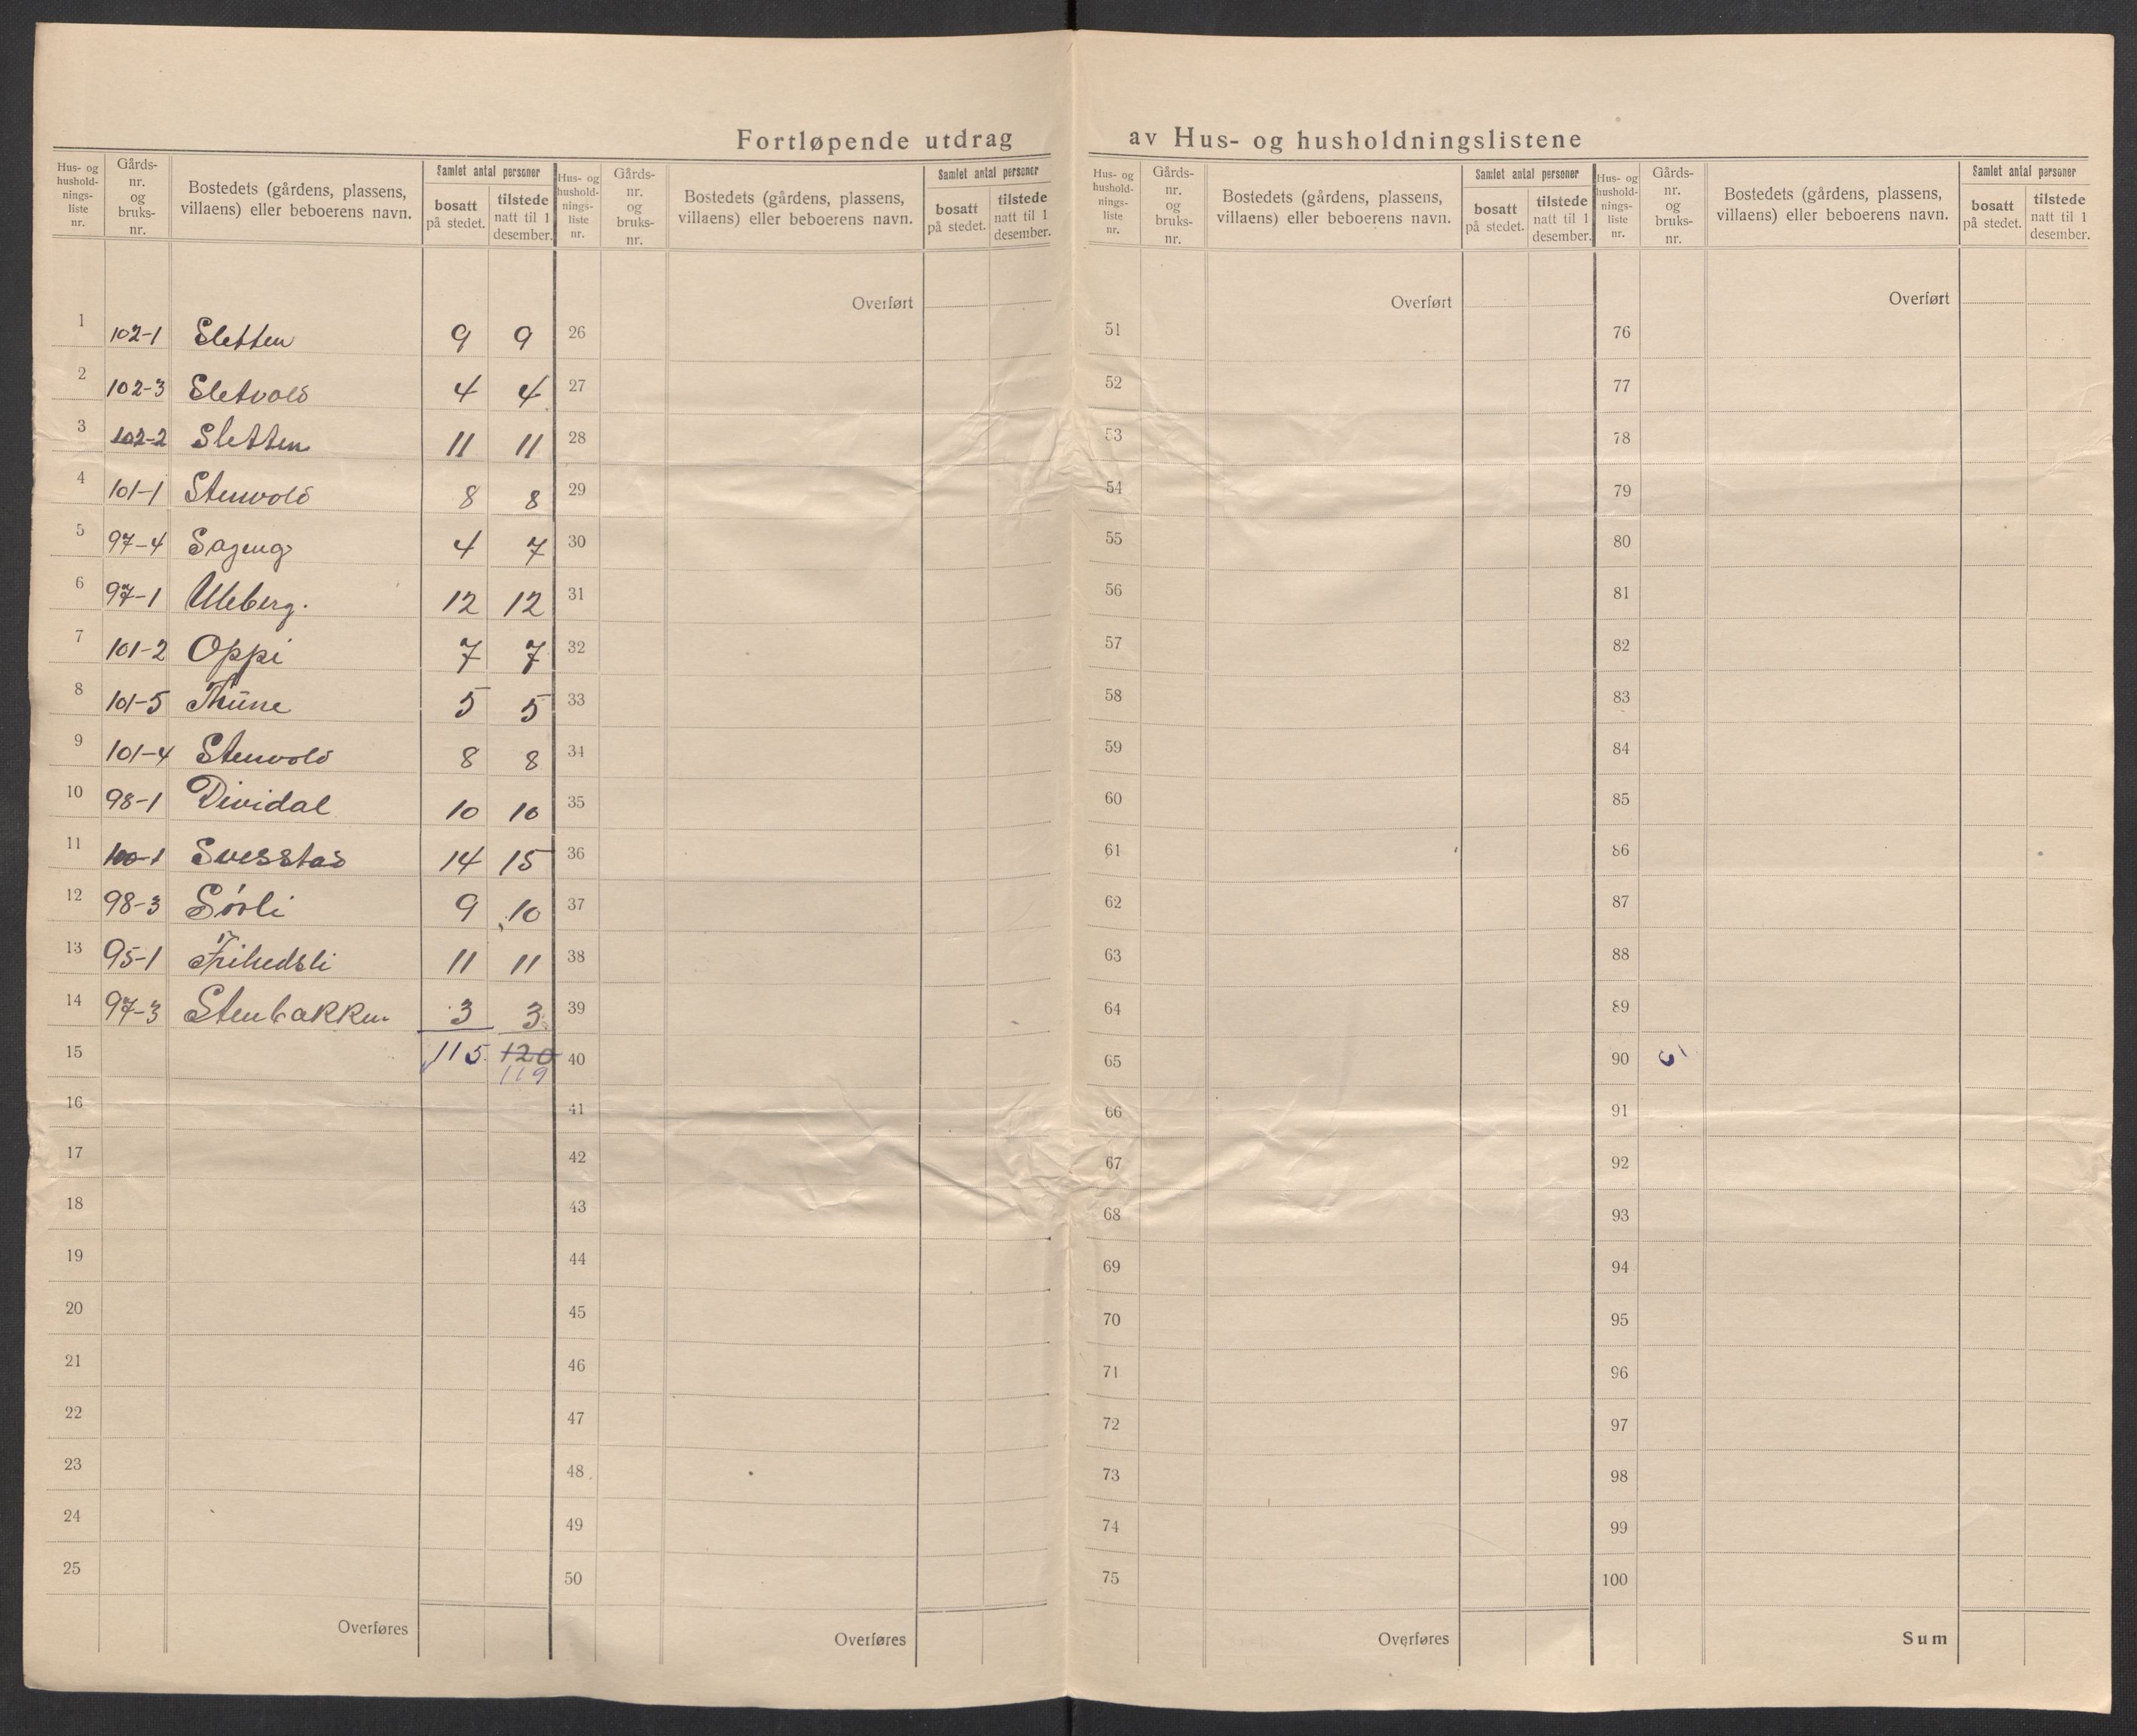 Fortløpende utdrag av Hus- og husholdningslistene
Hus- og hushold-nings-liste nr. | Gårds-nr. og bruks-nr. | Bostedets (gårdens, plassens, villaens) eller beboerens navn. | Samlet antal personer | bosatt på stedet. | tilstede natt til 1 desember.
Hus- og hushold-nings-liste nr. | Gårds-nr. og bruks-nr. | Bostedets (gårdens, plassens, villaens) eller beboerens navn. | Samlet antal personer | bosatt på stedet. | tilstede natt til 1 desember.
Hus- og hushold-nings-liste nr. | Gårds-nr. og bruks-nr. | Bostedets (gårdens, plassens, villaens) eller beboerens navn. | Samlet antal personer | bosatt på stedet. | tilstede natt til 1 desember.
Hus- og hushold-nings-liste nr. | Gårds-nr. og bruks-nr. | Bostedets (gårdens, plassens, villaens) eller beboerens navn. | Samlet antal personer | bosatt på stedet. | tilstede natt til 1 desember.
1 102-1 Sletten 9 9
2 102-3 Sletvold 4 4
3 102-2 Sletten 11 11
4 101-1 Stenvold 8 8
5 97-4 Sageng 4 7
6 97-1 Uleberg. 12 12
7 101-2 Oppi 7 7
8 101-5 Thune 5 5
9 101-4 Stenvold 8 8
10 98-1 Dividal 10 10
11 100-1 Svesstad 14 15
12 98-3 Sørli 9 10
13 95-1 Frihedsli 11 11
14 97-3 Stenbakken 3 3
15 115 120
119
16
17
18
19
20
21
22
23
24
25
Overføres
Overført
26
27
28
29
30
31
32
33
34
35
36
37
38
39
40
41
42
43
44
45
46
47
48
49
50
Overføres
Overført
51
52
53
54
55
56
57
58
59
60
61
62
63
64
65
66
67
68
69
70
71
72
73
74
75
Overføres
Overført
76
77
78
79
80
81
82
83
84
85
86
87
88
89
90
91
92
93
94
95
96
97
98
99
100
Sum